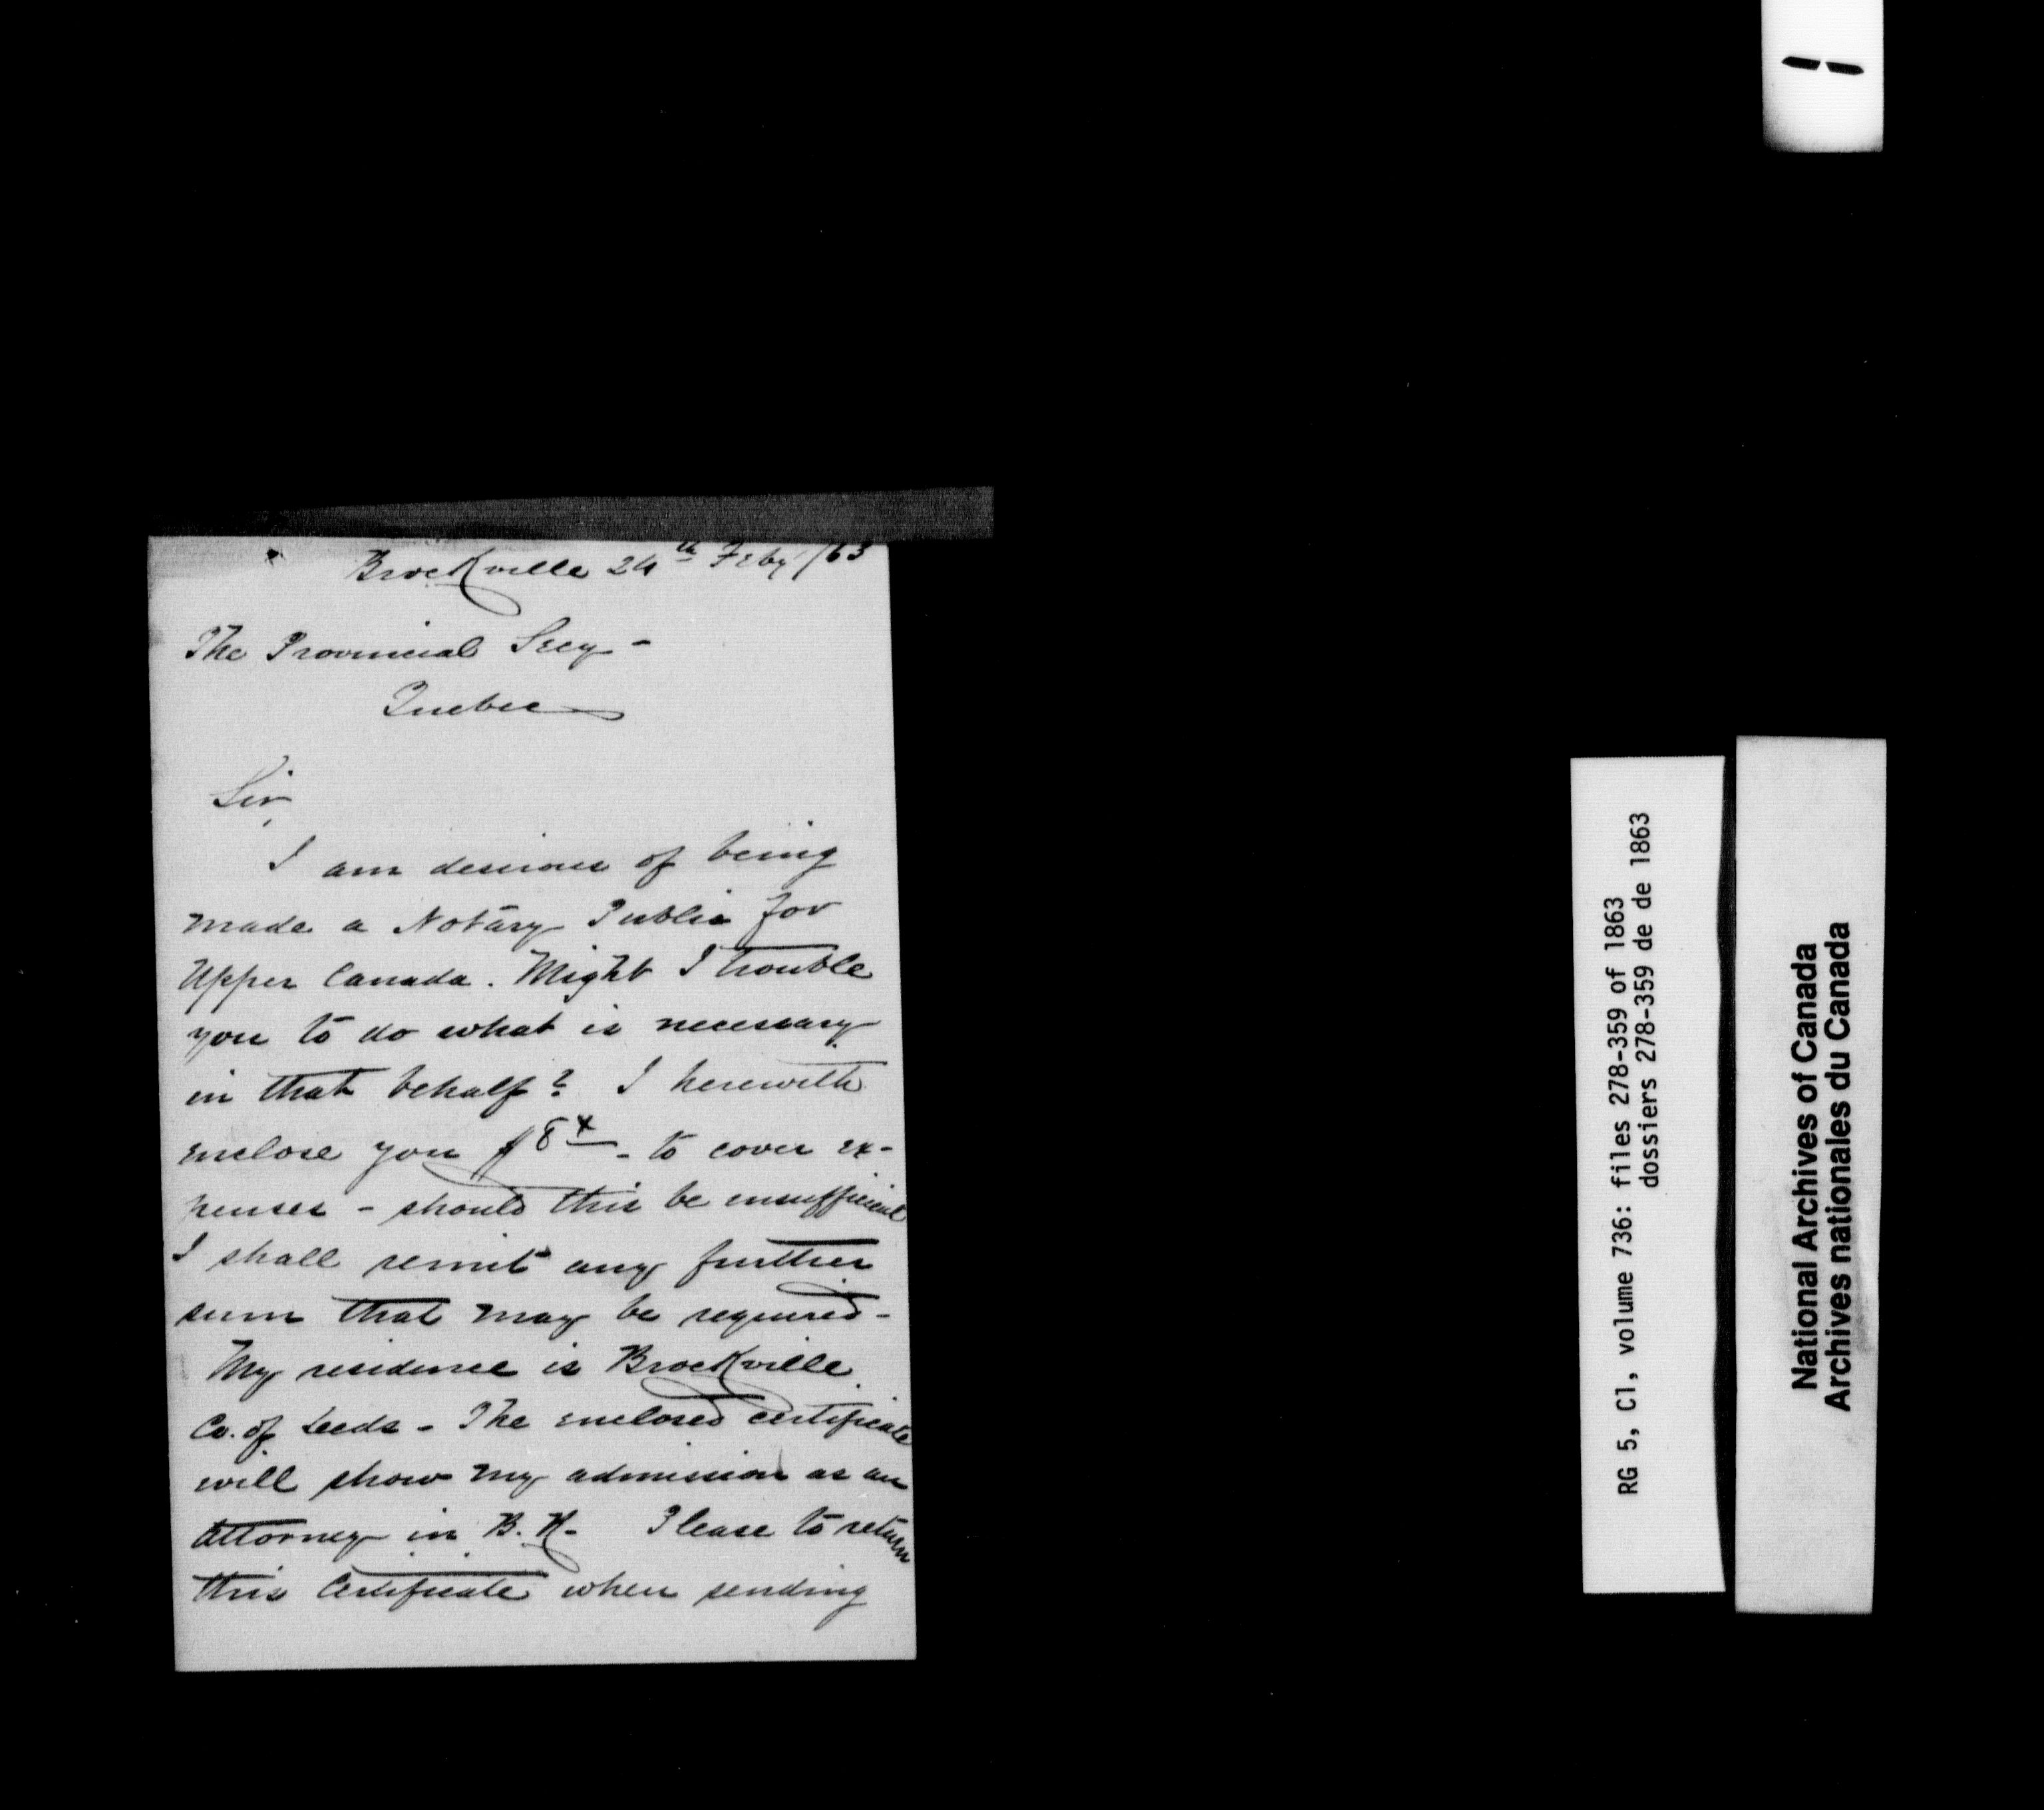 Brockville 24th Feby /63
The Provincial Secy -
Quebec
Sir,
I am desirous of being
made a Notary Public for
Upper Canada. Might I trouble
you to do what is necessary
in that behalf? I herewith
enclose you $8 - to cover ex-
penses - should this be insufficient
I shall remit any further
sum that may be required -
My residence is Brockville
Co. of Leeds - The enclosed certificate
will show my admission as an
Attorney in B. R. Please to return
this Certificate when sending
RG 5, C1, volume 736: files 278-359 of 1863
dossiers 278-359 de de 1863
National Archives of Canada
Archives nationales du Canada